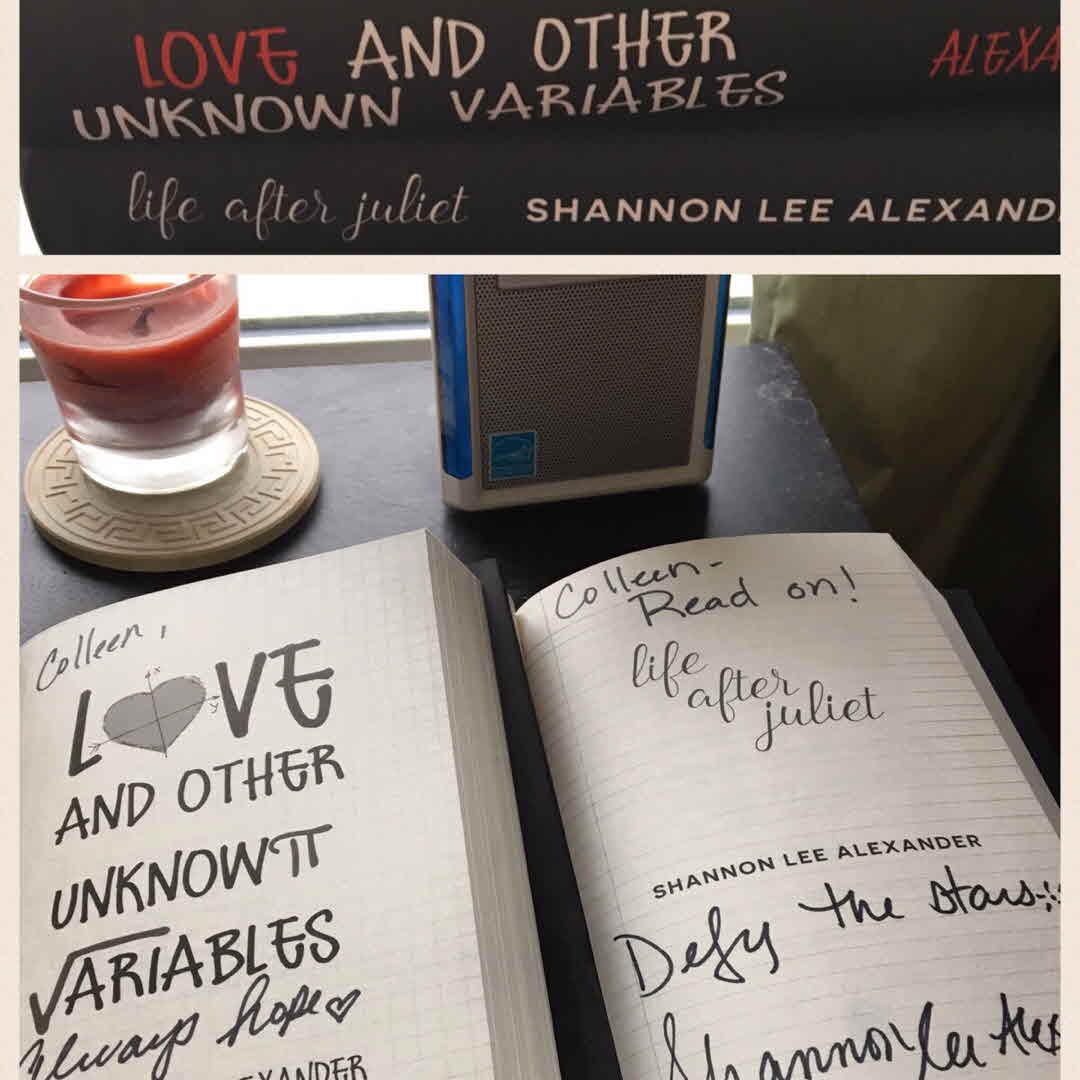 LOVE AND OTHER ALEXA
UNKNOWN VARIABLES
life after juliet SHANNON LEE ALEXAND
Colleen,
LOVE
x
y
AND OTHER
UNKNOWπ
√ARIABLES
Always hope
EXANDER
Colleen-
Read on!
life
after
juliet
SHANNON LEE ALEXANDER
Defy the stars
Shannon Lee Alex